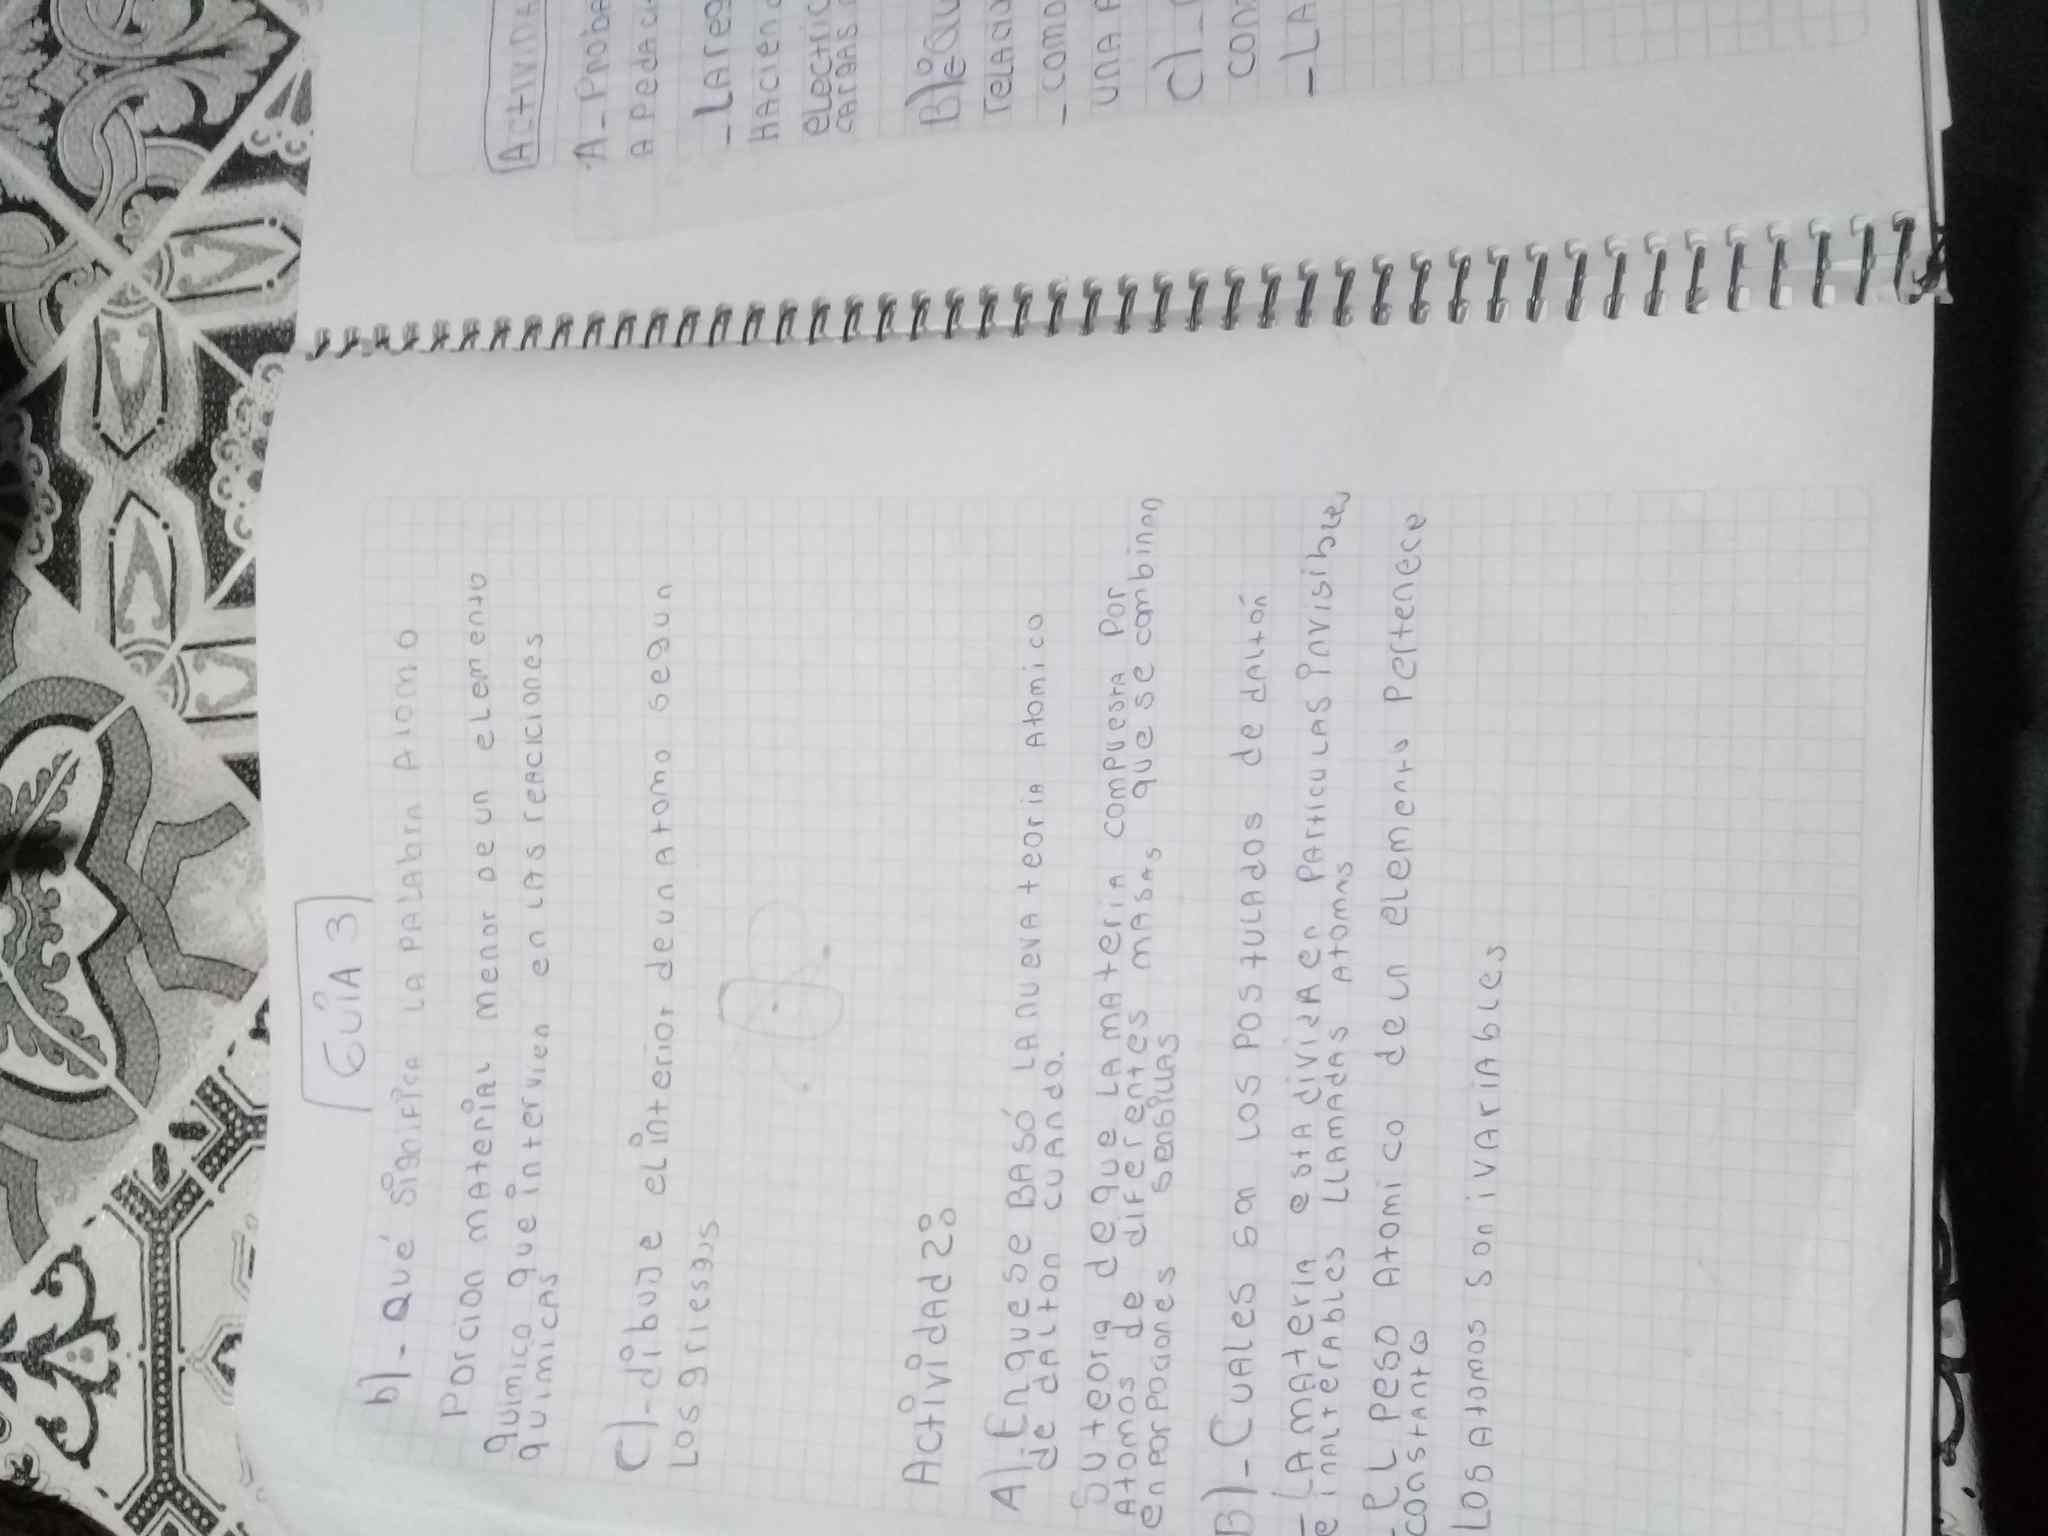 GUÍA 3
b)- Qué significa LA PALAbrA Atomo
Porcion mAteriAL menor De un eLemento
quimico que intervien en LAS reAciciones
quimicAS
C)- dibuje eL interior de un Atomo segun
Los griesgos
Actividad 2:
A). En que se BASó LA nuevA teoriA Atomico
de dALton cuAndo.
Su teoria de que LA mAteriA compuestA Por
Atomos de diferentes mASAS que se combinan
en Porpociones senSillAS
B)- CuALes son Los PostuLAdos de dALtón
- LA mAteriA estA dividA en PArticuLAS invisibles
e inALterAbles LLAmAdAS Atomos
- EL Peso Atomico de un eLemento Pertenece
constante
Los Atomos Son ivAriAbles
ActividA
A- ProbA
A PedAc
- LA reg
HAciend
electric
cArgAs
B) èqu
reLAci
- como
unA A
C)-
con
- LA